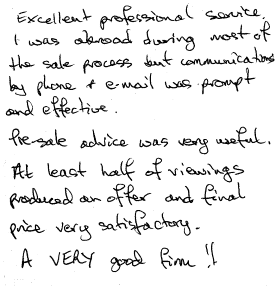 Excellent professional service.
I was abroad during most of
the sale process but communications
by phone & e-mail was prompt
and effective.
Pre-sale advice was very useful.
At least half of viewings
produced an offer and final
price very satisfactory.
A VERY good firm !!